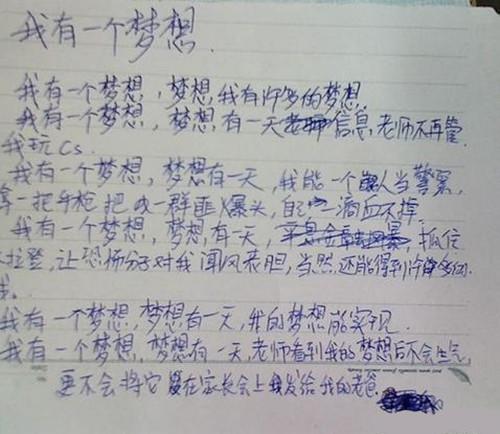 我有一个梦想.
我有一个梦想,梦想,我有许多的梦想.
我有一个梦想,梦想有一天信息老师不再管
我玩Cs.
我有一个梦想,梦想有一天,我能一个人当警察,
拿一把手枪把一群匪X爆头,自己一滴血不掉.
我有一个梦想,梦想,有一天,抓住
拉登,让恐怖分子对我闻风丧胆,当然,还能得到许多的
我有一个梦想,梦想有一天,我的梦想能实现.
我有一个梦想,梦想有一天,老师看到我的梦想后不会生气,
更不会将它在家长会上发给我的老爸.